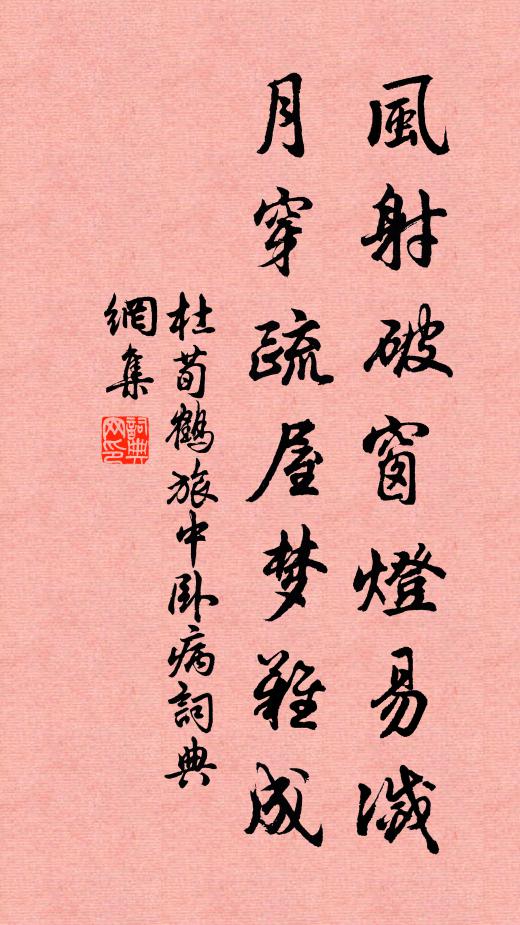 風射破窗燈易滅
月穿疏屋梦難成
杜荀鶴旅中卧病詞典
網集
詞典
网印